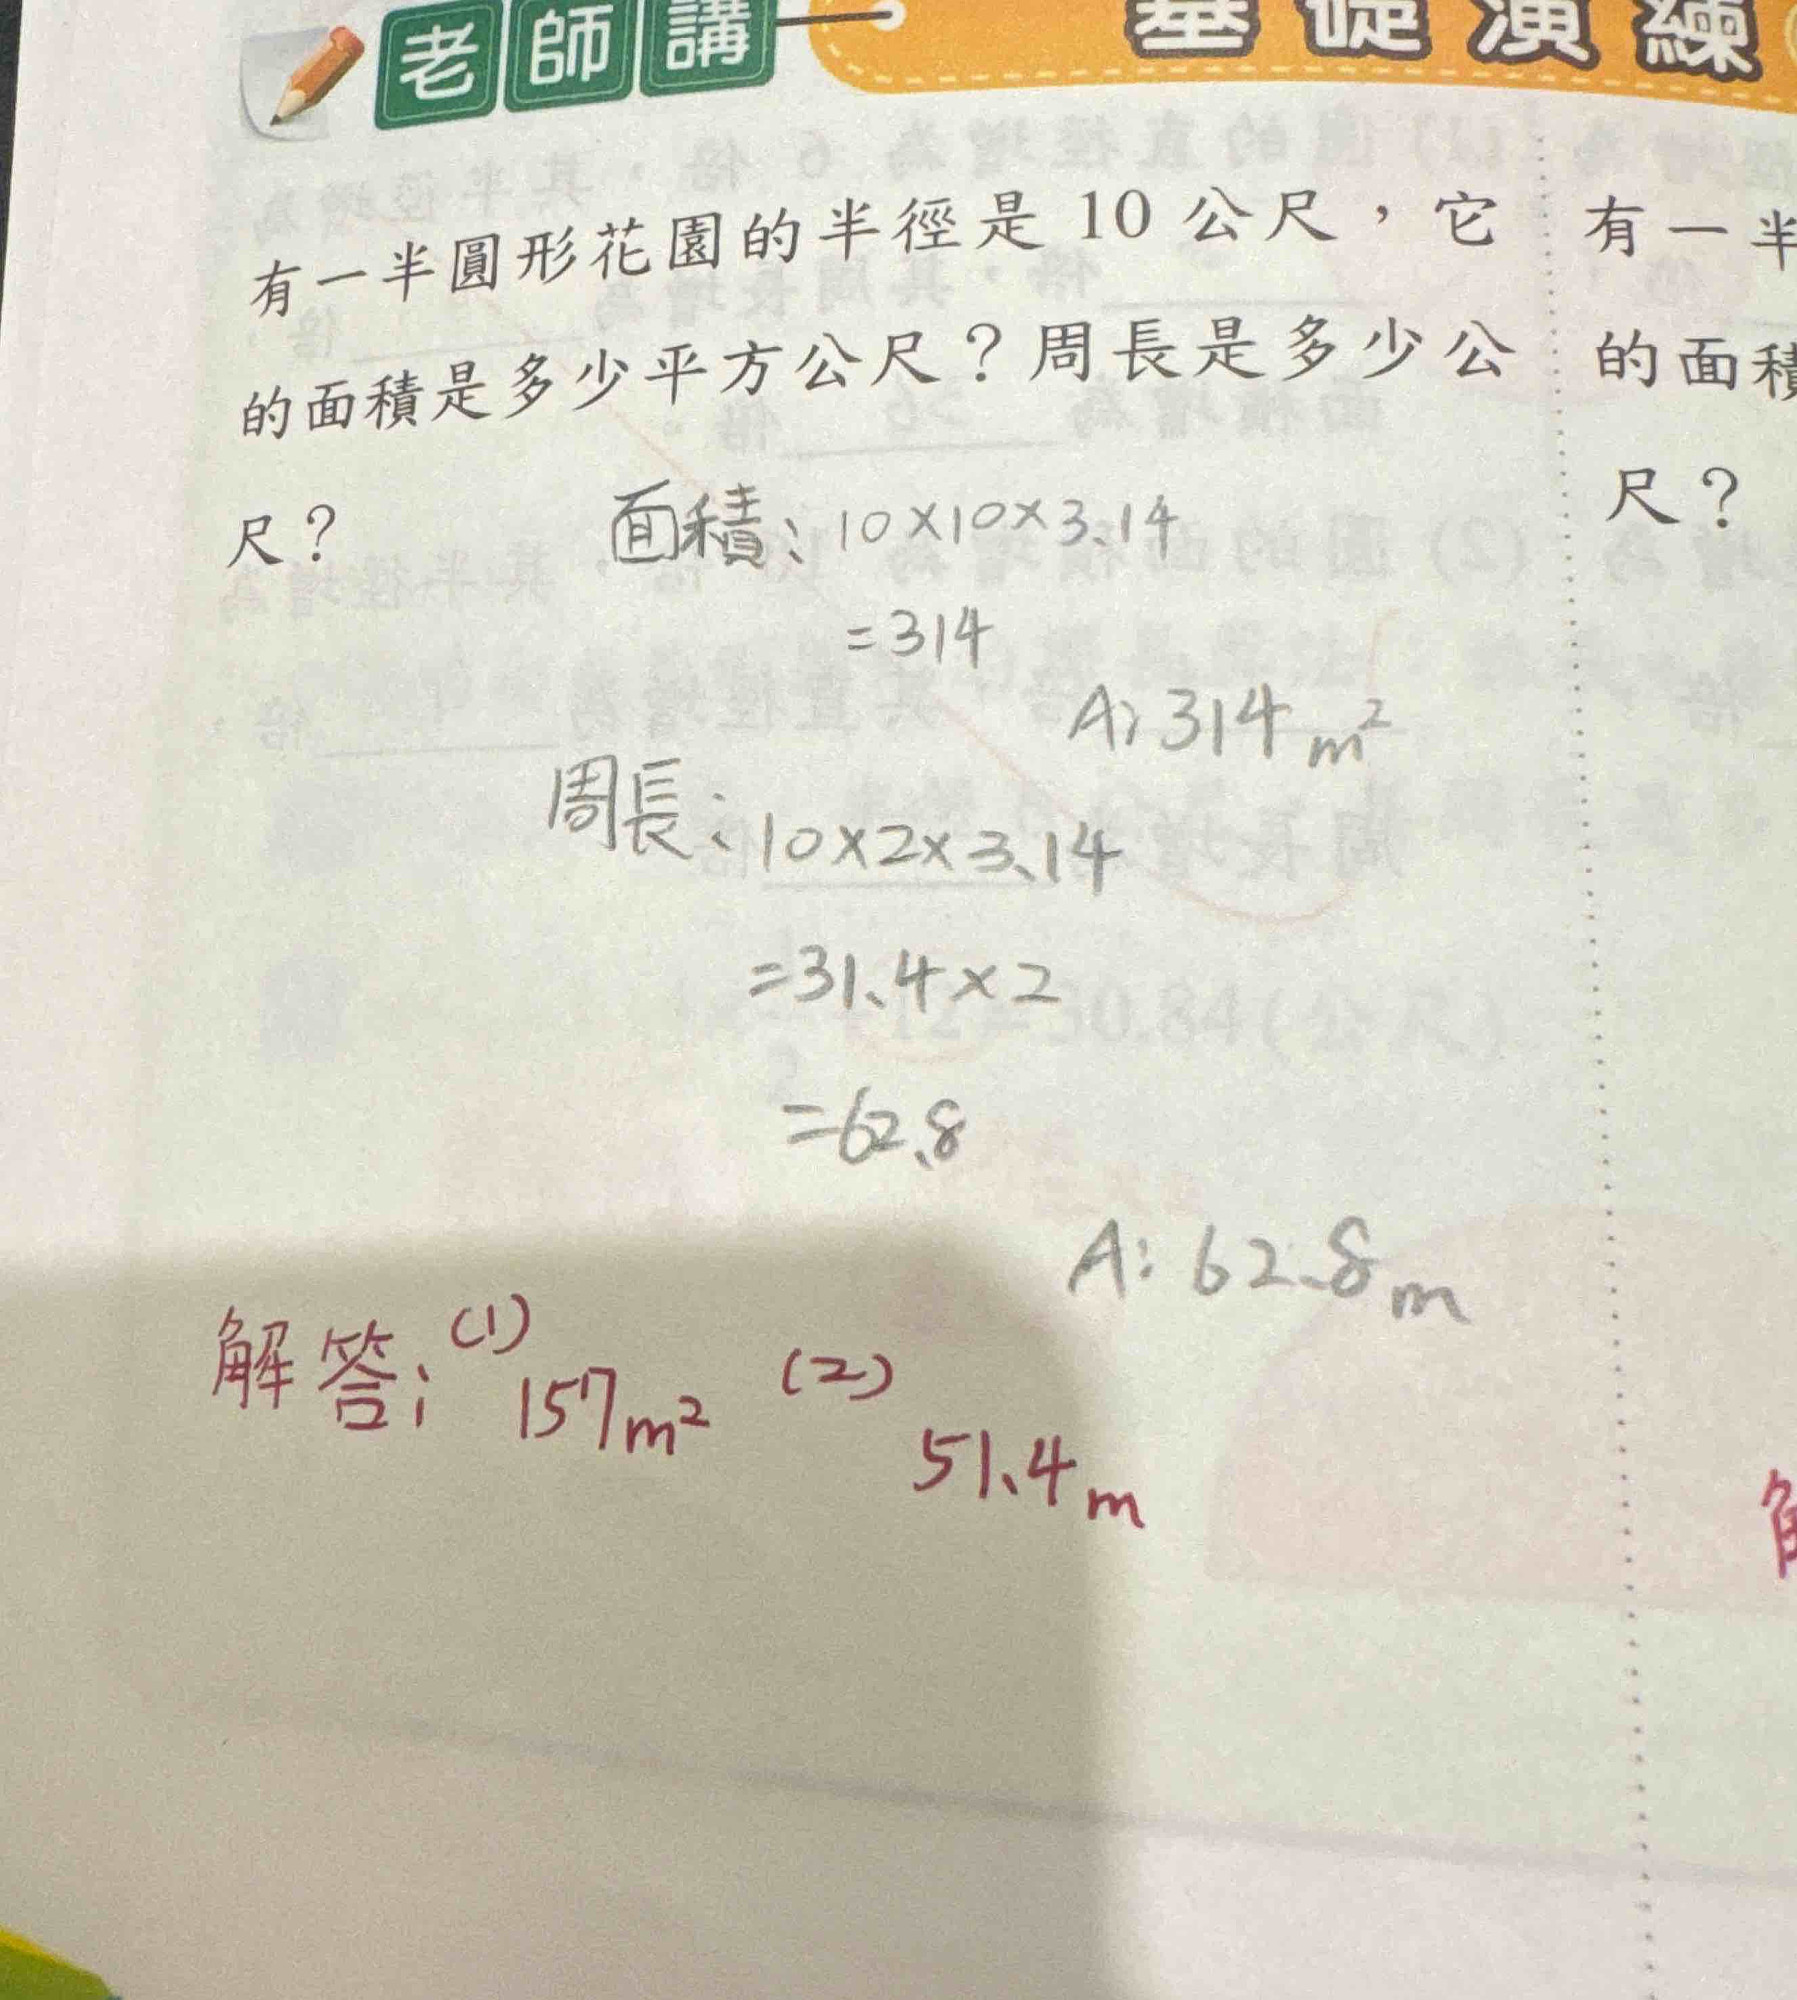 老師講 基礎演練
有一半圓形花園的半徑是 10 公尺，它
的面積是多少平方公尺？周長是多少公
尺？
面積：10×10×3.14
=314
A:314m²
周長：10×2×3.14
=31.4×2
=62.8
A:62.8m
解答：(1)157m² (2)51.4m
有一半
的面積
尺？